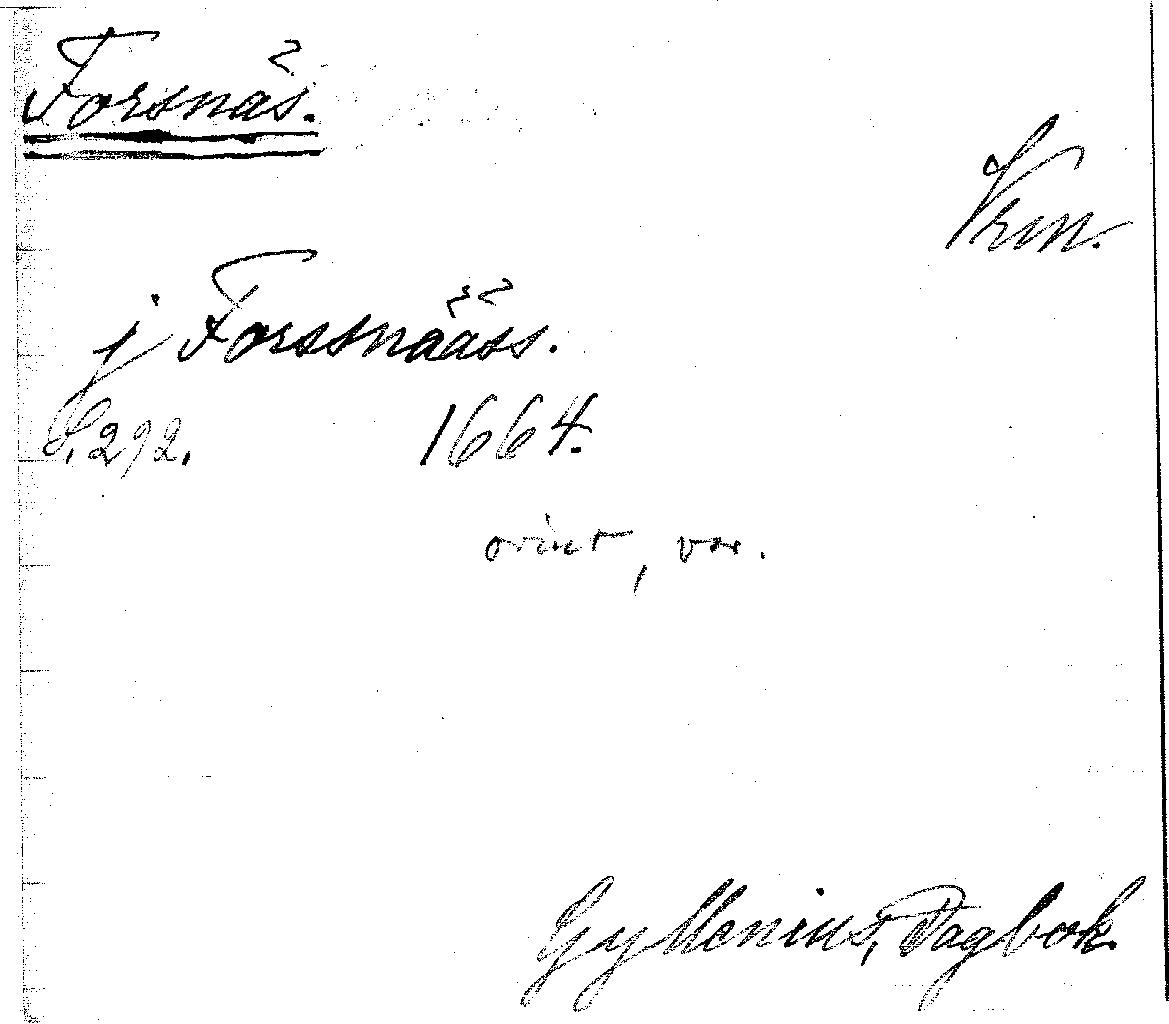 Forsnäs.
Vrm.
j Forssnääss.
S. 292. 1664.
orint, var.
Gyllenius, Dagbok.